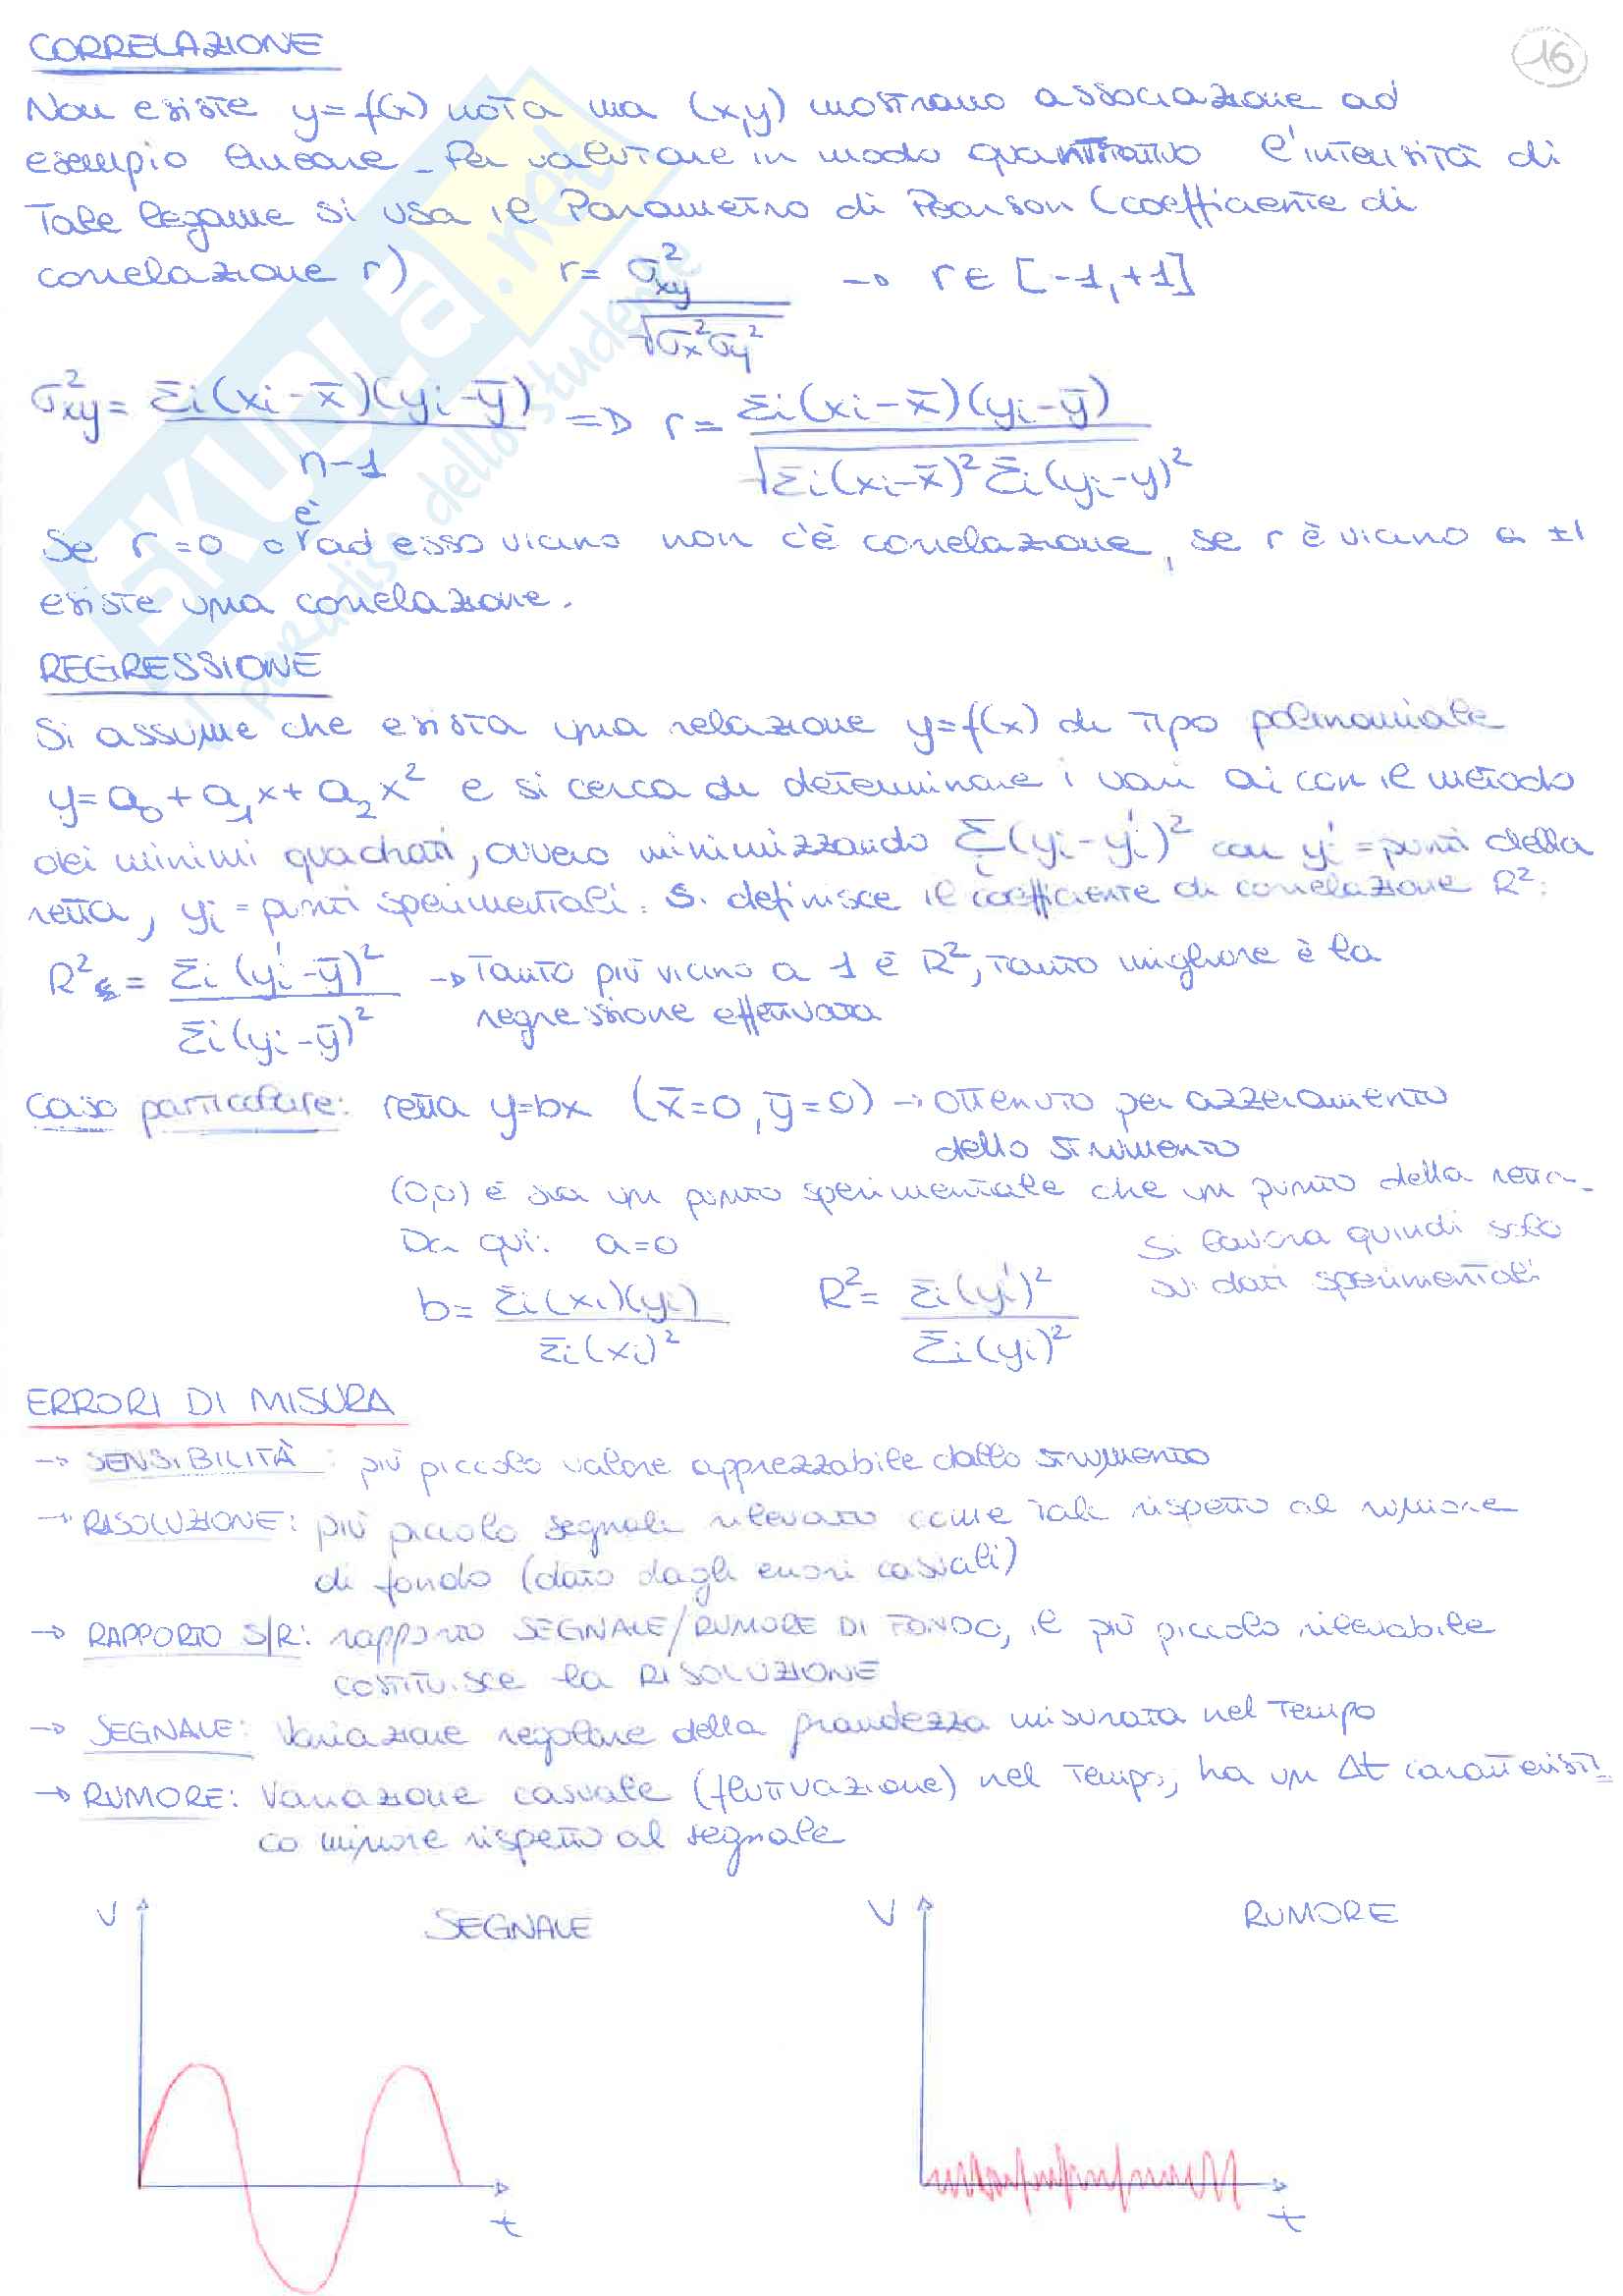 CORRELAZIONE
16
Non esiste y=f(x) nota ma (x,y) mostrano associazione ad
esempio lineare. Per valutare in modo quantitativo l'intensità di
tale legame si usa il Parametro di Pearson (coefficiente di
correlazione r) r= σ²xy / √σx²σy² → r∈ [-1,+1]
σ²xy = Σi(xi-x̄)(yi-ȳ) / n-1 => r= Σi(xi-x̄)(yi-ȳ) / √Σi(xi-x̄)²Σi(yi-y)²
Se r=0 o è ad esso vicino non c'è correlazione, se r è vicino a ±1
esiste una correlazione.
REGRESSIONE
Si assume che esista una relazione y=f(x) di tipo polinomiale
y=a₀+a₁x+a₂x² e si cerca di determinare i vari ai con il metodo
dei minimi quadrati, ovvero minimizzando Σi(yi-yi')² con yi'=punti della
retta, yi=punti sperimentali. Si definisce il coefficiente di correlazione R²:
R² = Σi(yi'-ȳ)² / Σi(yi-ȳ)² → Tanto più vicino a 1 è R², tanto migliore è la
regressione effettuata
Caso particolare: retta y=bx (x̄=0, ȳ=0) → ottenuto per azzeramento
dello strumento
(0,0) è sia un punto sperimentale che un punto della retta.
Da qui: a=0 Si lavora quindi solo
b= Σi(xi)(yi) / Σi(xi)² R²= Σi(yi')² / Σi(yi)² sui dati sperimentali
ERRORI DI MISURA
→ SENSIBILITÀ: più piccolo valore apprezzabile dallo strumento
→ RISOLUZIONE: più piccolo segnale rilevato come tale rispetto al rumore
di fondo (dato dagli errori casuali)
→ RAPPORTO S/R: rapporto SEGNALE/RUMORE DI FONDO, il più piccolo rilevabile
costituisce la RISOLUZIONE
→ SEGNALE: Variazione regolare della grandezza misurata nel tempo
→ RUMORE: Variazione casuale (fluttuazione) nel tempo, ha un Δt caratteristi
co minore rispetto al segnale
V SEGNALE
t
V RUMORE
t
SKUOLa.net
il paradiso dello studente